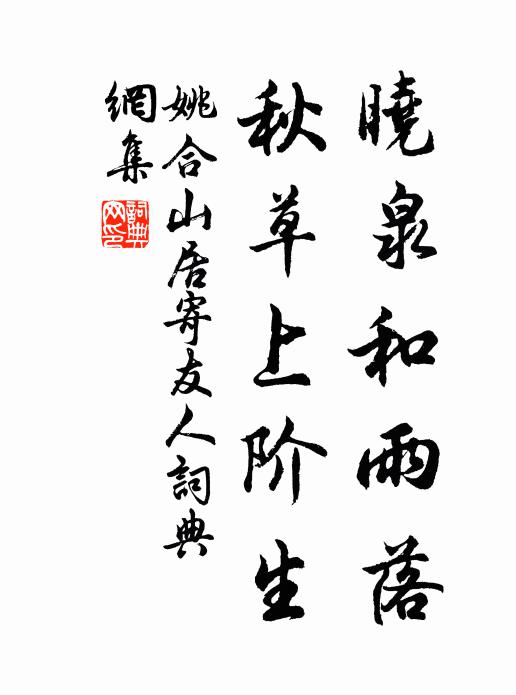 曉泉和雨落
秋草上阶生
姚合山居寄友人詞典
網集
詞典网印